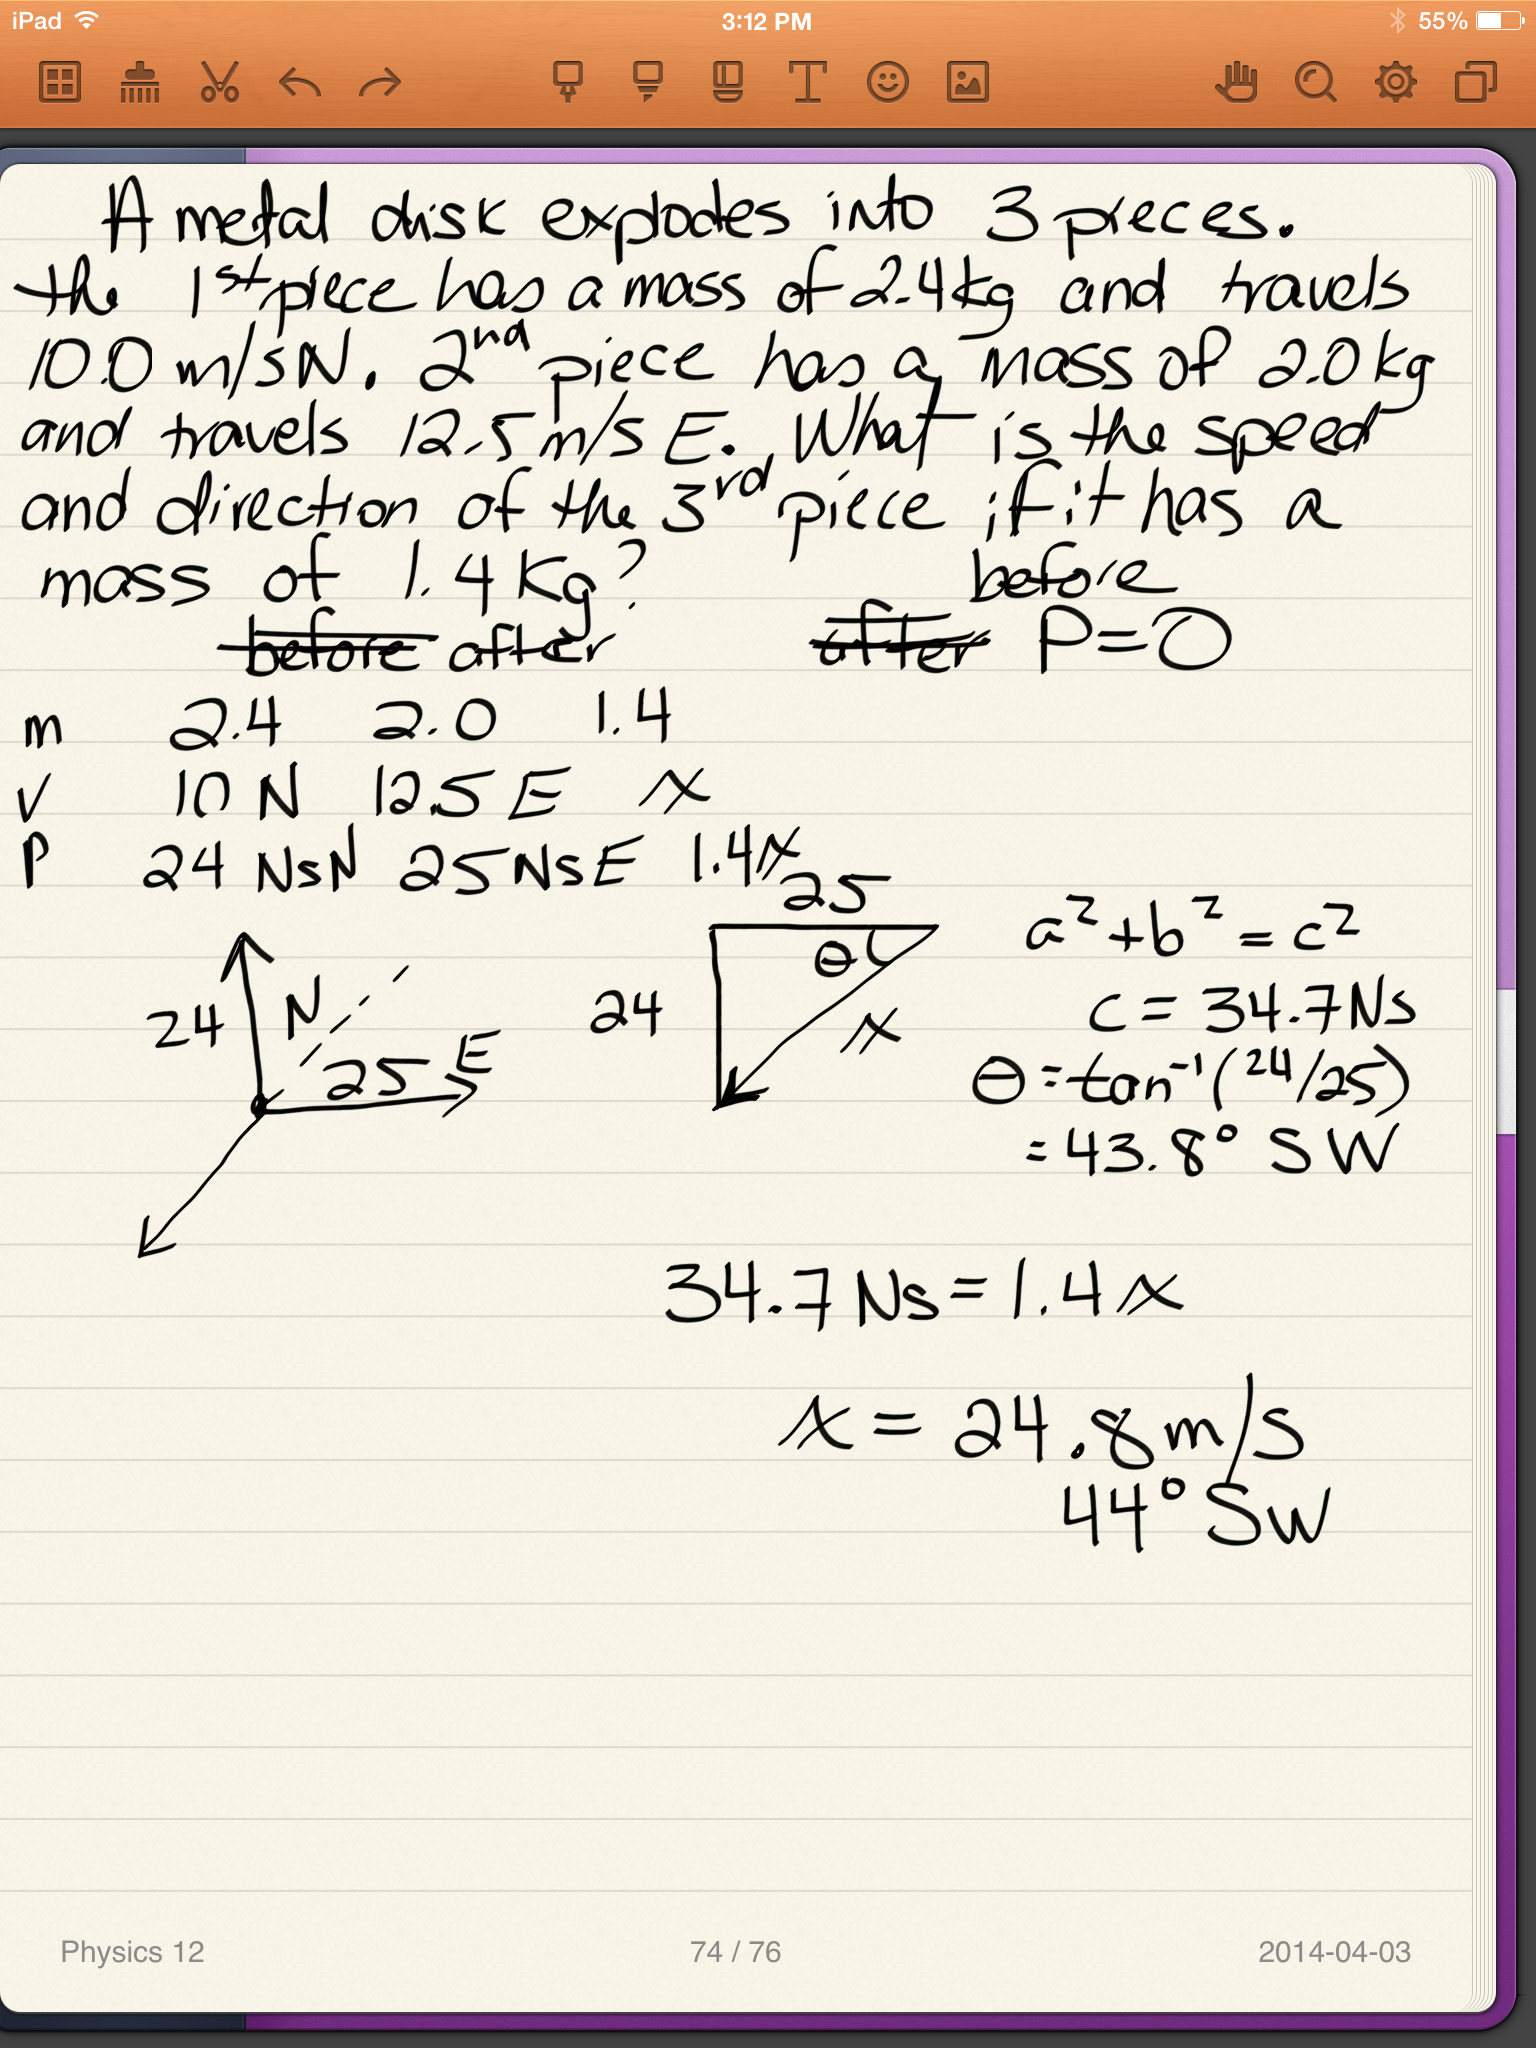 iPad 3:12 PM 55%
A metal disk explodes into 3 pieces.
the 1st piece has a mass of 2.4kg and travels
10.0 m/s N. 2nd piece has a mass of 2.0 kg
and travels 12.5 m/s E. What is the speed
and direction of the 3rd piece if it has a
mass of 1.4 Kg? before
before after after P=0
m 2.4 2.0 1.4
V 10 N 12.5 E x
P 24 NsN 25 NsE 1.4x
25
a²+b² = c²
θ
24 N 24 x c = 34.7 Ns
25 E θ = tan⁻¹(24/25)
= 43.8° SW
34.7 Ns = 1.4x
x = 24.8 m/s
44° SW
Physics 12 74 / 76 2014-04-03